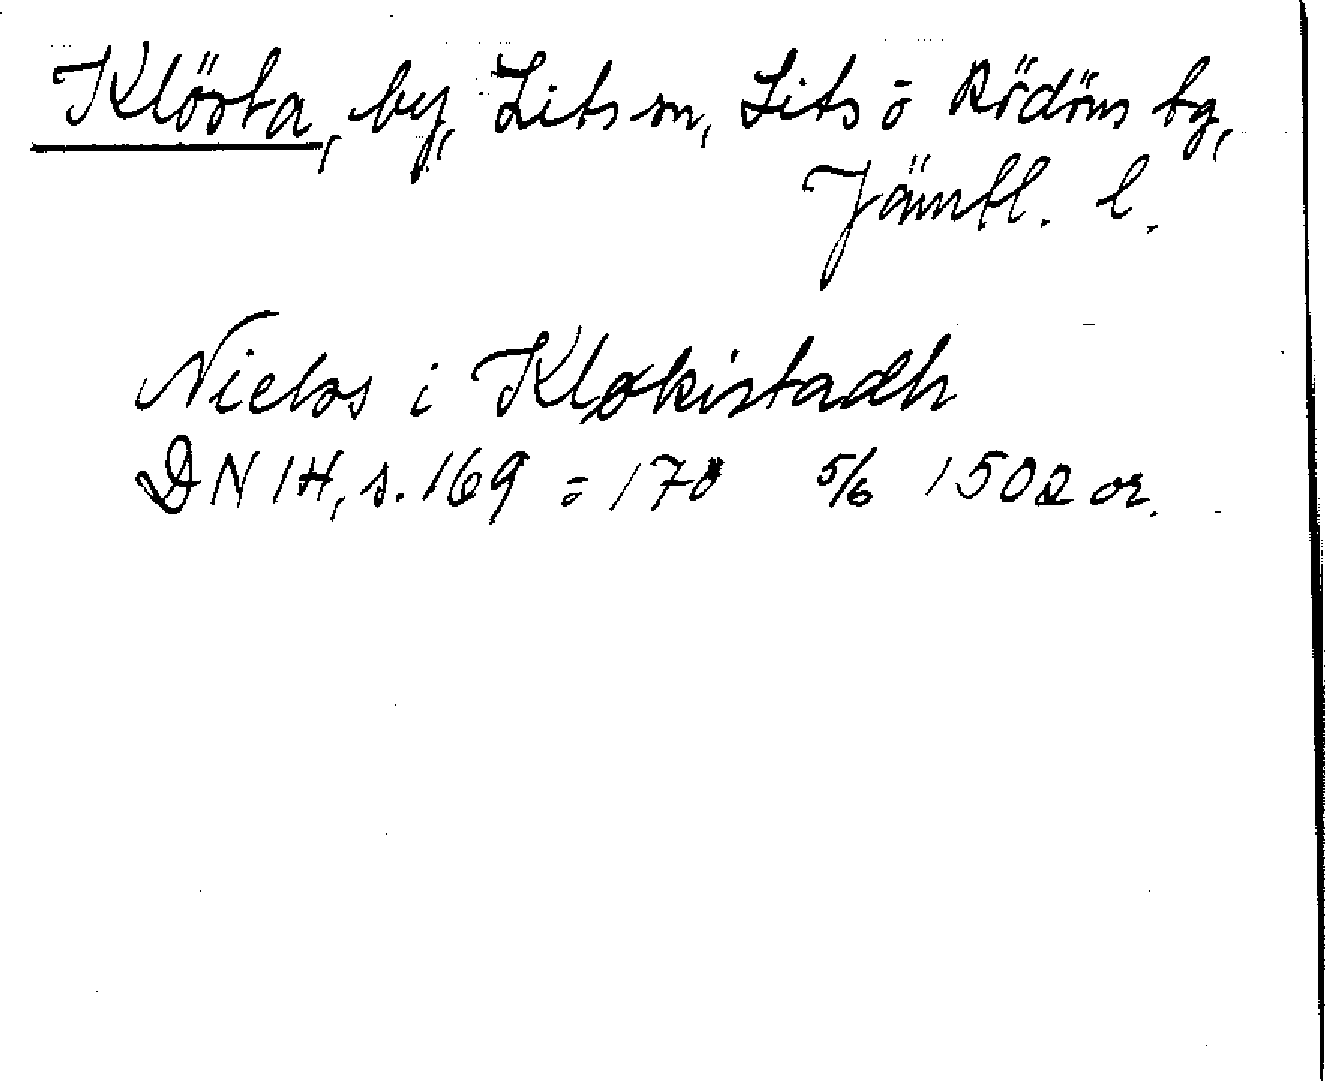 Klösta, by, Lits sn, Lits o Rödöns tg,
Jämtl. l.
Nielss i Kløkistadh
DN 14, s. 169 = 170 5/6 1502 or.